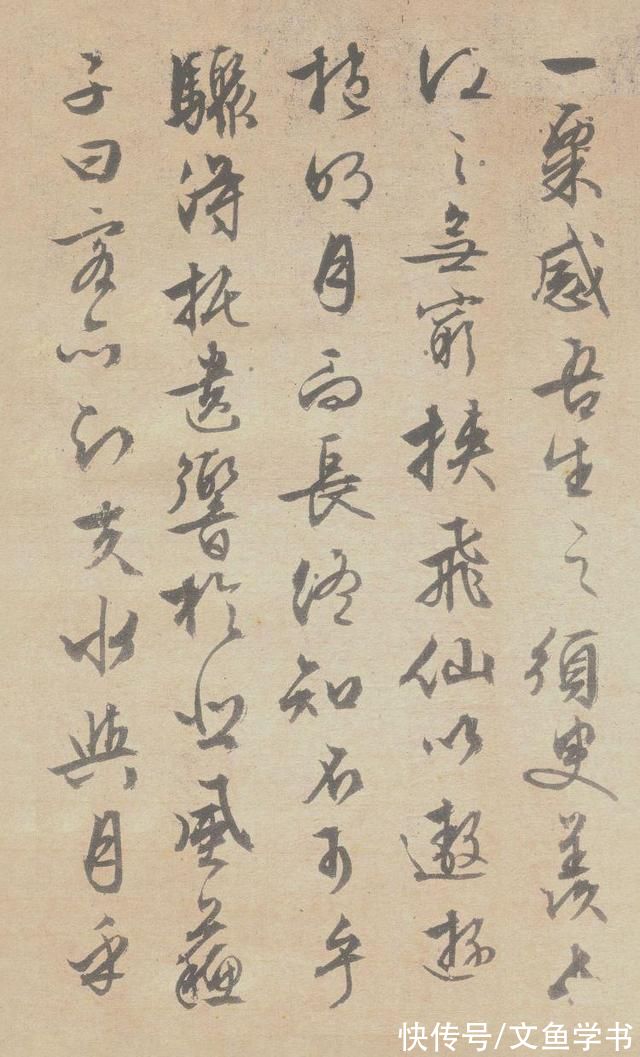 一粟感吾生之須臾羨長
江之無窮挾飛仙以遨遊
抱明月而長終知不可乎
驟得托遺響於悲風蘇
子曰客亦知夫水與月乎
快传号/文鱼学书